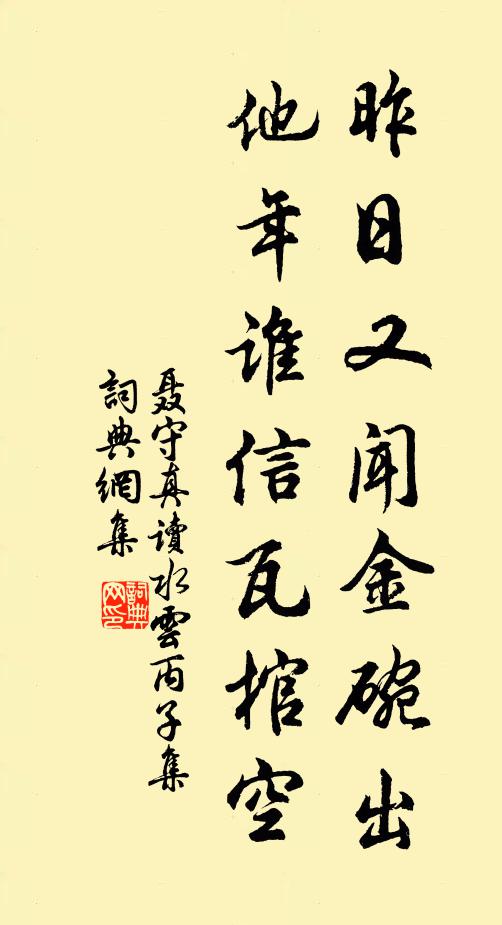 昨日又聞金碗出
他年誰信瓦棺空
聂守真讀水雲丙子集
詞典網集
詞典
网印